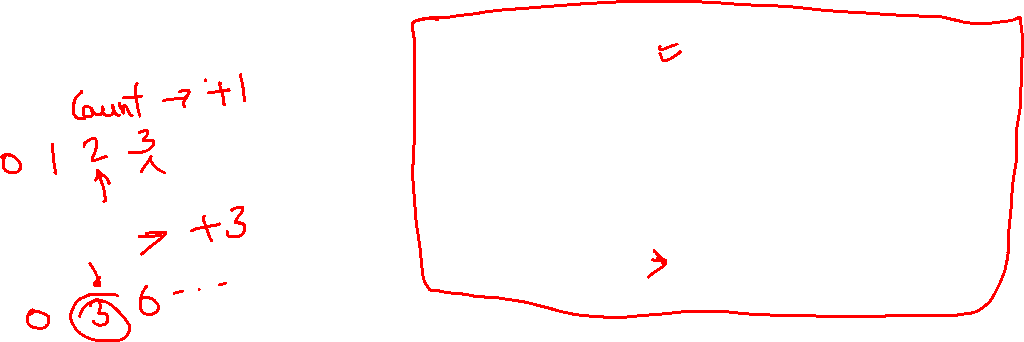 Count → +1
0 1 2 3
→ +3
0 3 6 ...
=
>